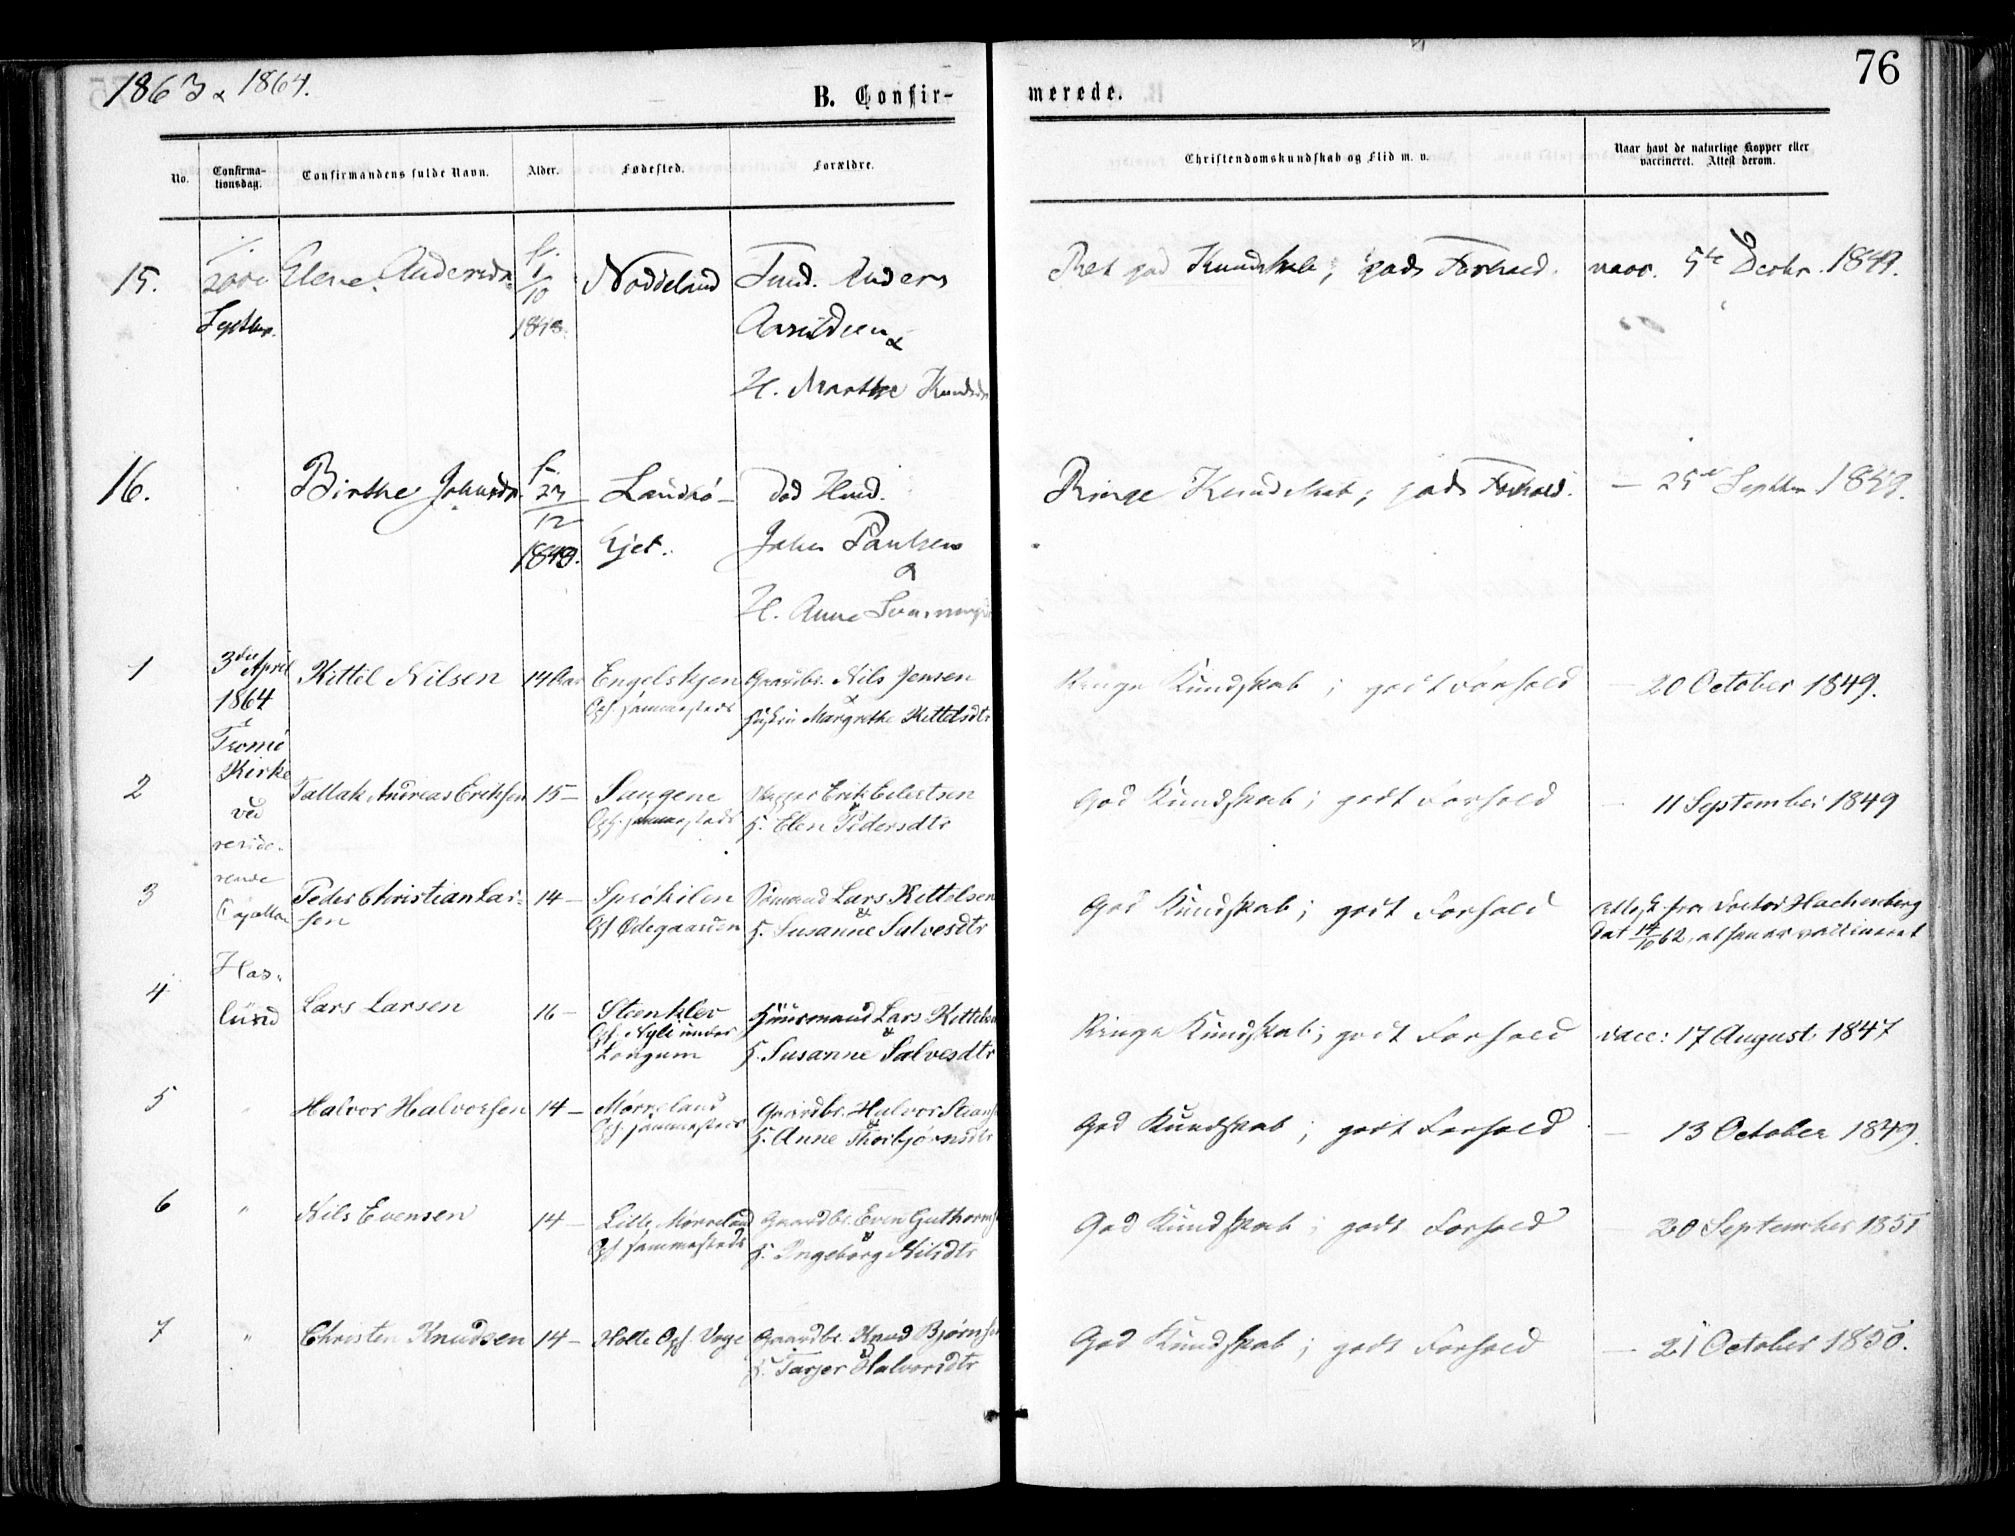 1863 & 1864.
76
B. Confir-
merede.
No.
Confirma-
tionsdag.
Confirmandens fulde Navn.
Alder.
Fødested.
Forældre.
Christendomskundskab og Flid m. v.
Naar havt de naturlige Kopper eller
vaccineret. Attest derom.
15. 20de Elene Andersdr. f. 1/10 Noddeland Anders
Septbr. 1848.
&
H. Marthe Knudsdr
Ret god Kundskab; godt Forhold. vacc. 5te Decbr. 1849.
16. Birthe Johnsdr. f. 27/12 Landsø- Hmd.
1849. Ejet. John Paulsen
&
H. Anne
Ringe Kundskab; godt Forhold. — 25de Septbr. 1859.
1 3die April Kittil Nilsen 14 Aar Engelskjen Gaardbr. Nils Jensen
1864 Opf. sammesteds & Hustru Margrethe Kittelsdtr
Ringe Kundskab; godt Forhold — 20 October 1849.
i Tromø
Kirke
2 Tallak Andreas Eriksen 15 — Saugene Erik Eilertsen
ved Opf. sammesteds & H. Elen Pedersdtr
God Kundskab; godt Forhold — 11 September 1849
reside-
rende
3 Capellan Peder Christian Lar- 14 — Sprøkilen Sømand Lars Kittelsen
sen Opf Ødegaarden & H. Susanne Salvesdtr
God Kundskab; godt Forhold Attest fra Doctor Hachenberg
Dat 14/10 62, at han er vaccineret
Has-
lund
4 Lars Larsen 16 — Steenklev Huusmand Lars Kittelsen
Opf. Nyli under & H. Susanne Salvesdtr
Longum
Ringe Kundskab; godt Forhold vacc: 17 August 1847
5 " Halvor Halvorsen 14 — Mørreland Gaardbr. Halvor
Opf. sammesteds & H. Anne Thorbjørnsdtr
God Kundskab; godt Forhold — 13 October 1849.
6 " Nils Evensen 14 — Lille Mørreland Gaardbr. Even Guthormsen
Opf sammesteds & H. Ingeborg Nilsdtr
God Kundskab; godt Forhold 20 September 1851
7 " Christen Knudsen 14 — Holte Opf. Vrge Gaardbr. Knud Bjørnsen
& H. Tarjer Halvorsdtr
God Kundskab; godt Forhold — 21 October 1850.